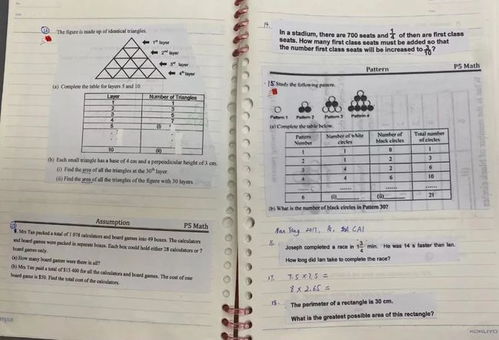 The figure is made up of identical triangles.
1st layer
2nd layer
3rd layer
4th layer
(a) Complete the table for layers 5 and 10
Layer Number of Triangles
1 1
2 3
3 5
4 7
5 (i)
10 (ii)
(b) Each small triangle has a base of 4 cm and a perpendicular height of 3 cm.
(i) Find the area of all the triangles at the 30th layer
(ii) Find the area of all the triangles of the figure with 30 layers
Assumption P5 Math
9. Mrs Tan packed a total of 1 078 calculators and board games into 49 boxes. The calculators
and board games were packed in separate boxes. Each box could hold either 28 calculators or 7
board games only.
(a) How many board games were there in all?
(b) Mrs Tan paid a total of $15 400 for all the calculators and board games. The cost of one
board game is $50. Find the total cost of the calculators.
14.
In a stadium, there are 700 seats and 1/4 of then are first class
seats. How many first class seats must be added so that
the number first class seats will be increased to 3/10?
Pattern P5 Math
15 Study the following pattern.
Pattern 1 Pattern 2 Pattern 3 Pattern 4
(a) Complete the table below.
Pattern Number Number of white circles Number of black circles Total number of circles
1 1 0 1
2 1 2 3
3 4 2 6
4 4 6 10
...... ...... ......
6 (i) (ii) 21
(b) What is the number of black circles in Pattern 30?
16.
Joseph completed a race in 1 3/4 min. He was 14 s faster than Ian.
How long did Ian take to complete the race?
17. 7.5 x 7.5 =
8 x 2.65 =
18.
The perimeter of a rectangle is 30 cm.
What is the greatest possible area of this rectangle?
KOKUYO